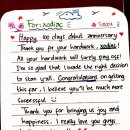 For: xodiac
Happy 100 days debut anniversary
Thank you for your hardwork, xodiac!
All your hardwork will surely pay off
I'm so glad that I made the right decision
to stan you!!. Congratulations on getting
this far, I believe you'll be much more
successful
Thank you for bringing us joy and
happiness, I really love you guys